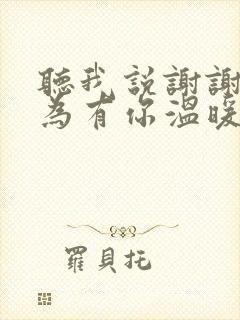 聽我説謝謝
為有你溫暖
羅貝托